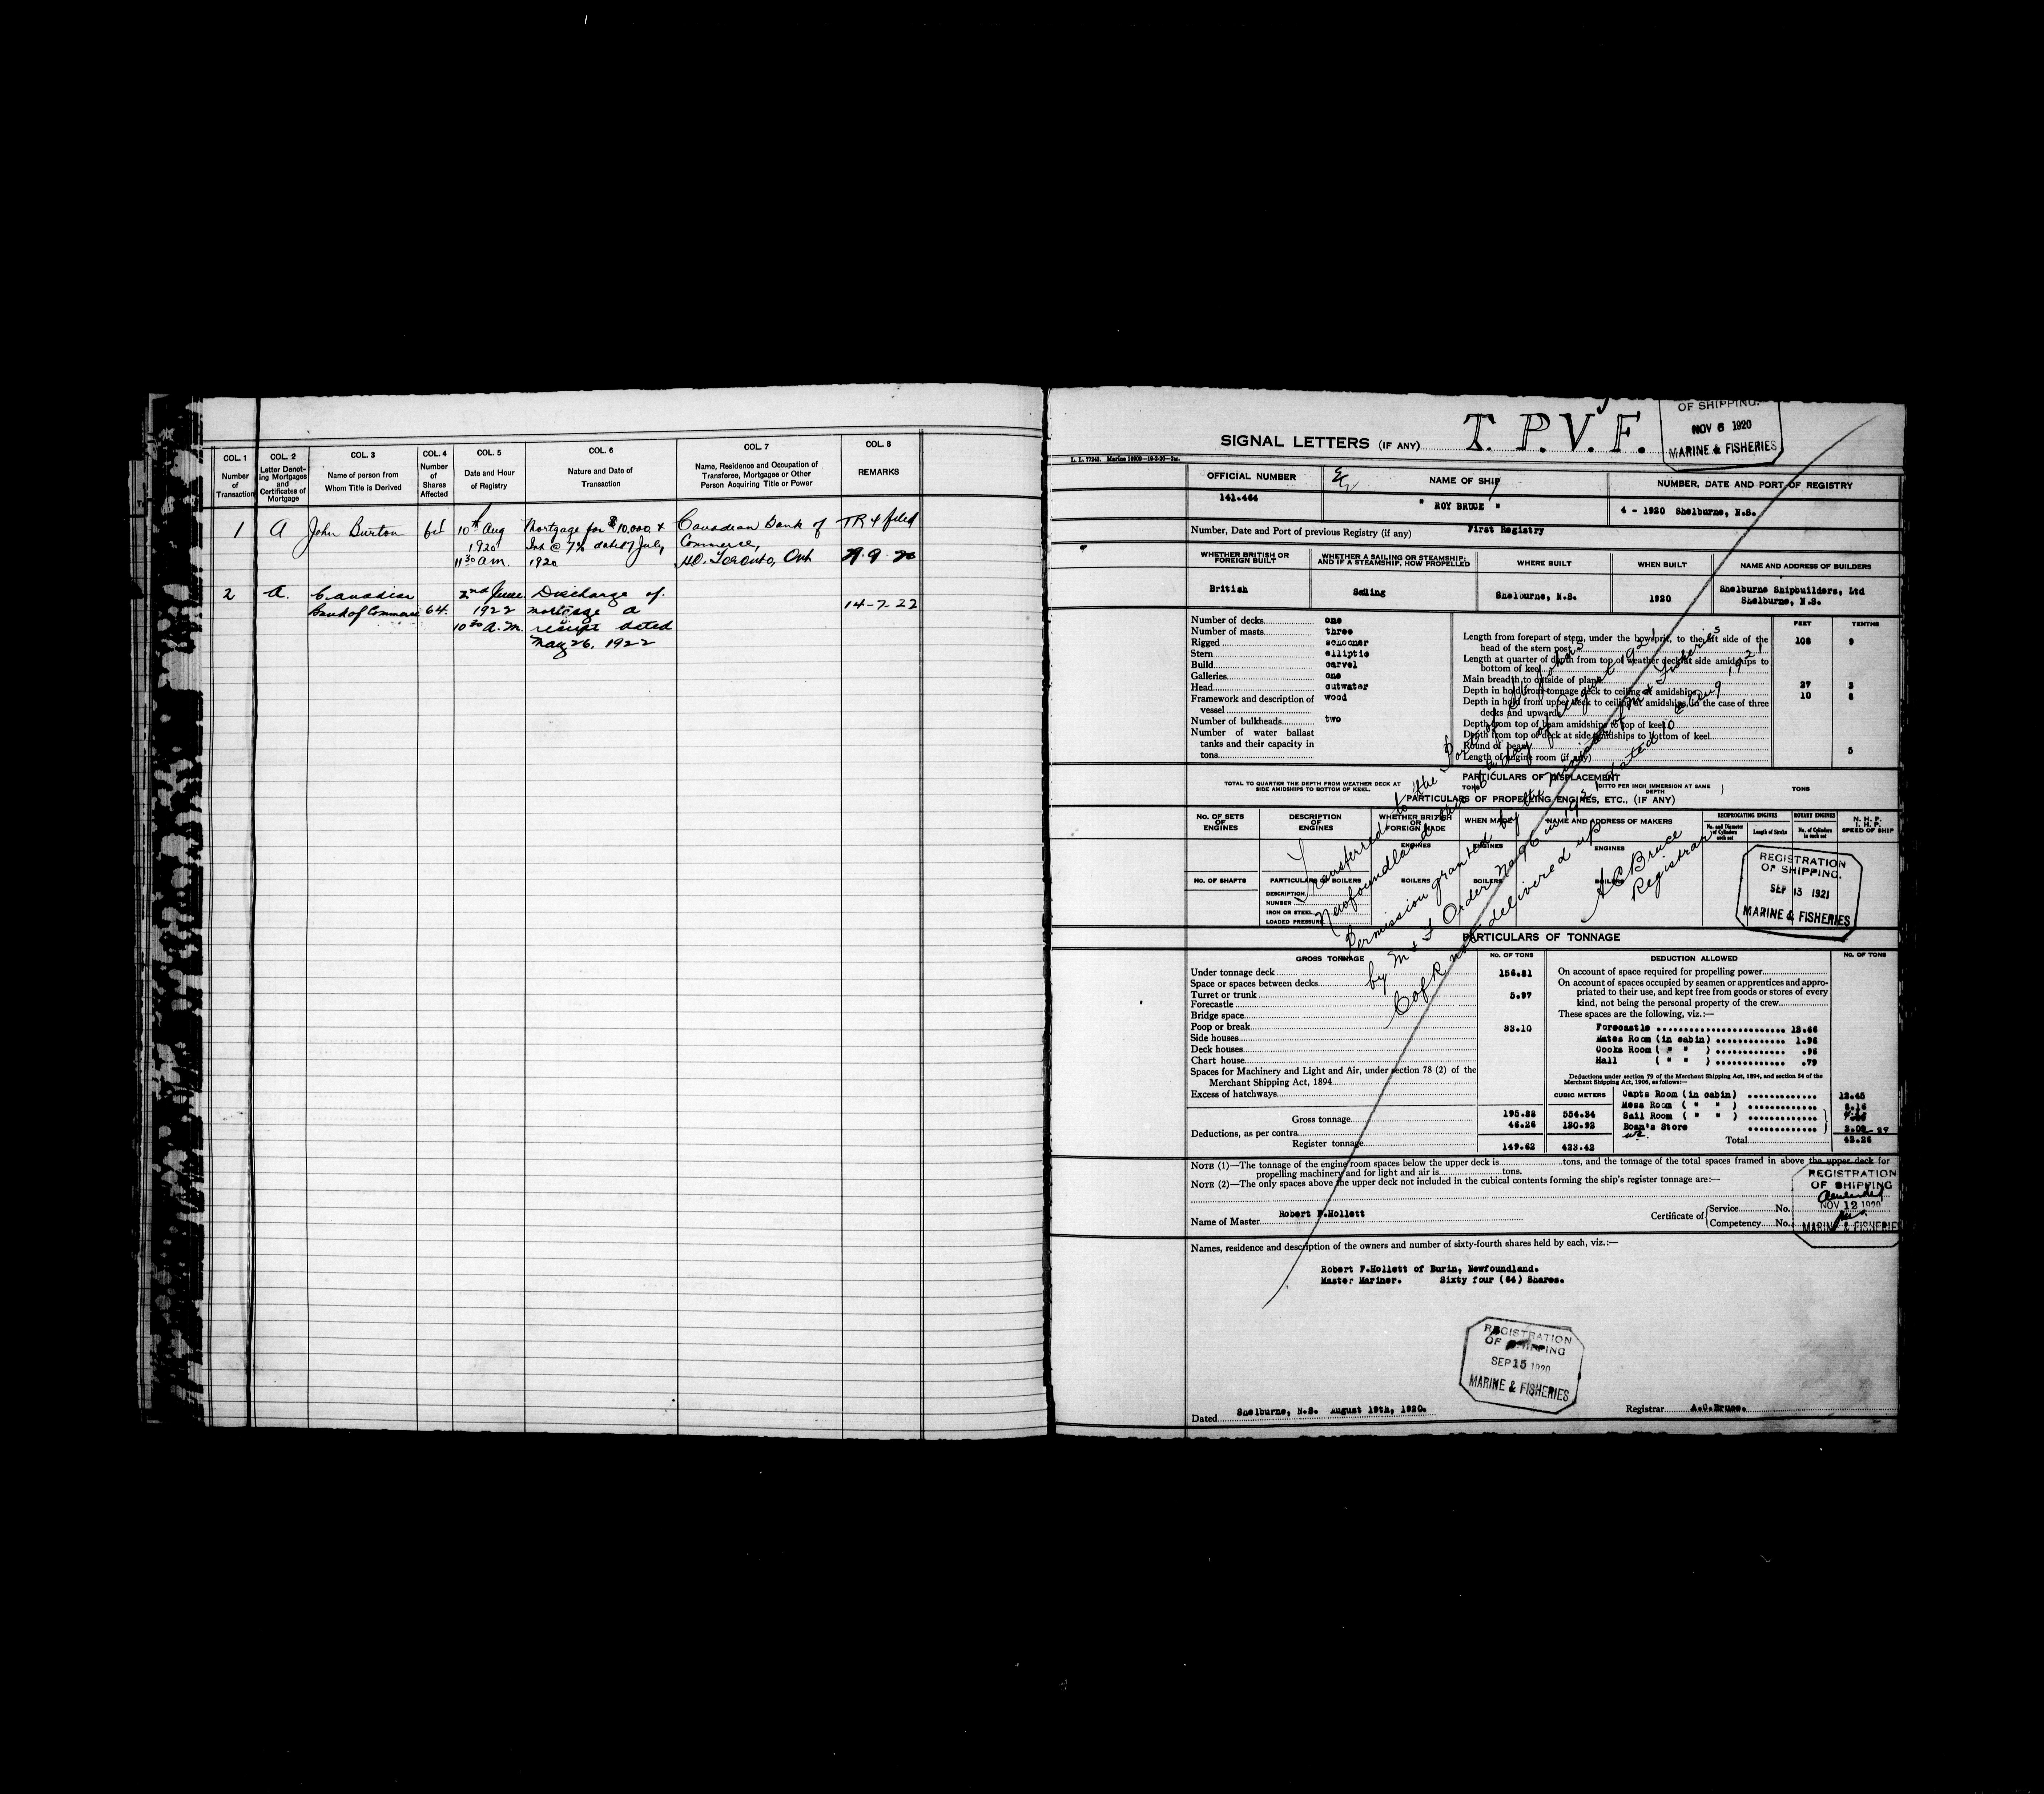 COL. 1 COL. 2 COL. 3 COL. 4 COL. 5 COL. 6 COL. 7 COL. 8
Number of Transaction
Letter Denoting Mortgages and Certificates of Mortgage
Name of person from Whom Title is Derived
Number of Shares Affected
Date and Hour of Registry
Nature and Date of Transaction
Name, Residence and Occupation of Transferee, Mortgagee or Other Person Acquiring Title or Power
REMARKS
1 A John Burton 64 10th Aug Mortgage for $10,000 & Canadian Bank of TR 4 filed
1920 Int @ 7% dated 7 July Commerce,
11 30 am. 1920 HO. Toronto, Ont
2 A. Canadian 2nd June Discharge of
Bank of Commerce 64. 1922 mortgage a 14-7-22
10 30 A.M. receipt dated
May 26, 1922
SIGNAL LETTERS (IF ANY) T. P. V. F.
OF SHIPPING.
NOV 6 1920
MARINE & FISHERIES
L. L. 77243. Marine 18909—19-3-20—2m.
OFFICIAL NUMBER NAME OF SHIP NUMBER, DATE AND PORT OF REGISTRY
141.464 " ROY BRUCE " 4 - 1920 Shelburne, N.S.
Number, Date and Port of previous Registry (if any) First Registry
WHETHER BRITISH OR FOREIGN BUILT
WHETHER A SAILING OR STEAMSHIP; AND IF A STEAMSHIP, HOW PROPELLED
WHERE BUILT WHEN BUILT NAME AND ADDRESS OF BUILDERS
British Sailing Shelburne, N.S. 1920 Shelburne Shipbuilders, Ltd
Shelburne, N.S.
FEET TENTHS
Number of decks one
Number of masts three
Rigged schooner
Stern elliptic
Build carvel
Galleries one
Head cutwater
Framework and description of vessel wood
Number of bulkheads two
Number of water ballast tanks and their capacity in tons
Length from forepart of stem, under the bowsprit, to the aft side of the head of the stern post 108 9
Length at quarter of depth from top of weather deck at side amidships to bottom of keel
Main breadth to outside of plank 27 3
Depth in hold from tonnage deck to ceiling at amidships 10 8
Depth in hold from upper deck to ceiling at amidships, in the case of three decks and upwards
Depth from top of beam amidships to top of keel
Depth from top of deck at side amidships to bottom of keel
Round of beam 5
Length of engine room (if any)
PARTICULARS OF DISPLACEMENT
TOTAL TO QUARTER THE DEPTH FROM WEATHER DECK AT SIDE AMIDSHIPS TO BOTTOM OF KEEL. TONS DITTO PER INCH IMMERSION AT SAME DEPTH TONS
PARTICULARS OF PROPELLING ENGINES, ETC., (IF ANY)
NO. OF SETS OF ENGINES
DESCRIPTION OF ENGINES
WHETHER BRITISH OR FOREIGN MADE
WHEN MADE
NAME AND ADDRESS OF MAKERS
RECIPROCATING ENGINES ROTARY ENGINES
No. and Diameter of Cylinders in each set Length of Stroke No. of Cylinders in each set
N. H. P. I. H. P. SPEED OF SHIP
ENGINES ENGINES ENGINES
NO. OF SHAFTS PARTICULARS OF BOILERS BOILERS BOILERS BOILERS
DESCRIPTION
NUMBER
IRON OR STEEL
LOADED PRESSURE
Transferred to the Port of St Johns
Newfoundland this day of August 1921
Permission granted by the minister of M & Fisheries
by M & F Order no 96 dated 10 Aug 1921
C of R not delivered up
A C Bruce
Registrar
REGISTRATION
OF SHIPPING.
SEP 13 1921
MARINE & FISHERIES
PARTICULARS OF TONNAGE
GROSS TONNAGE NO. OF TONS DEDUCTION ALLOWED NO. OF TONS
Under tonnage deck 156.81
Space or spaces between decks
Turret or trunk 5.97
Forecastle
Bridge space
Poop or break 33.10
Side houses
Deck houses
Chart house
Spaces for Machinery and Light and Air, under section 78 (2) of the Merchant Shipping Act, 1894
Excess of hatchways
Gross tonnage 195.88 554.34
Deductions, as per contra 46.26 130.92
Register tonnage 149.62 423.42
CUBIC METERS
On account of space required for propelling power
On account of spaces occupied by seamen or apprentices and appropriated to their use, and kept free from goods or stores of every kind, not being the personal property of the crew
These spaces are the following, viz.:—
Forecastle 13.66
Mates Room (in cabin) 1.96
Cooks Room ( " " ) .96
Hall ( " " ) .79
Deductions under section 79 of the Merchant Shipping Act, 1894, and section 54 of the Merchant Shipping Act, 1906, as follows:—
Capts Room (in cabin) 12.45
Mess Room ( " " )
Sail Room ( " " )
Bosn's Store
Total
NOTE (1)—The tonnage of the engine room spaces below the upper deck is tons, and the tonnage of the total spaces framed in above the upper deck for propelling machinery and for light and air is tons.
NOTE (2)—The only spaces above the upper deck not included in the cubical contents forming the ship's register tonnage are:—
REGISTRATION
OF SHIPPING
Amended
NOV 12 1920
MARINE & FISHERIES
Name of Master Robert F.Hollett
Certificate of Service No.
Competency No.
Names, residence and description of the owners and number of sixty-fourth shares held by each, viz.:—
Robert F.Hollett of Burin, Newfoundland.
Master Mariner. Sixty four (64) Shares.
REGISTRATION
OF SHIPPING
SEP 15 1920
MARINE & FISHERIES
Dated Shelburne, N.S. August 19th, 1920.
Registrar A.C.Bruce.